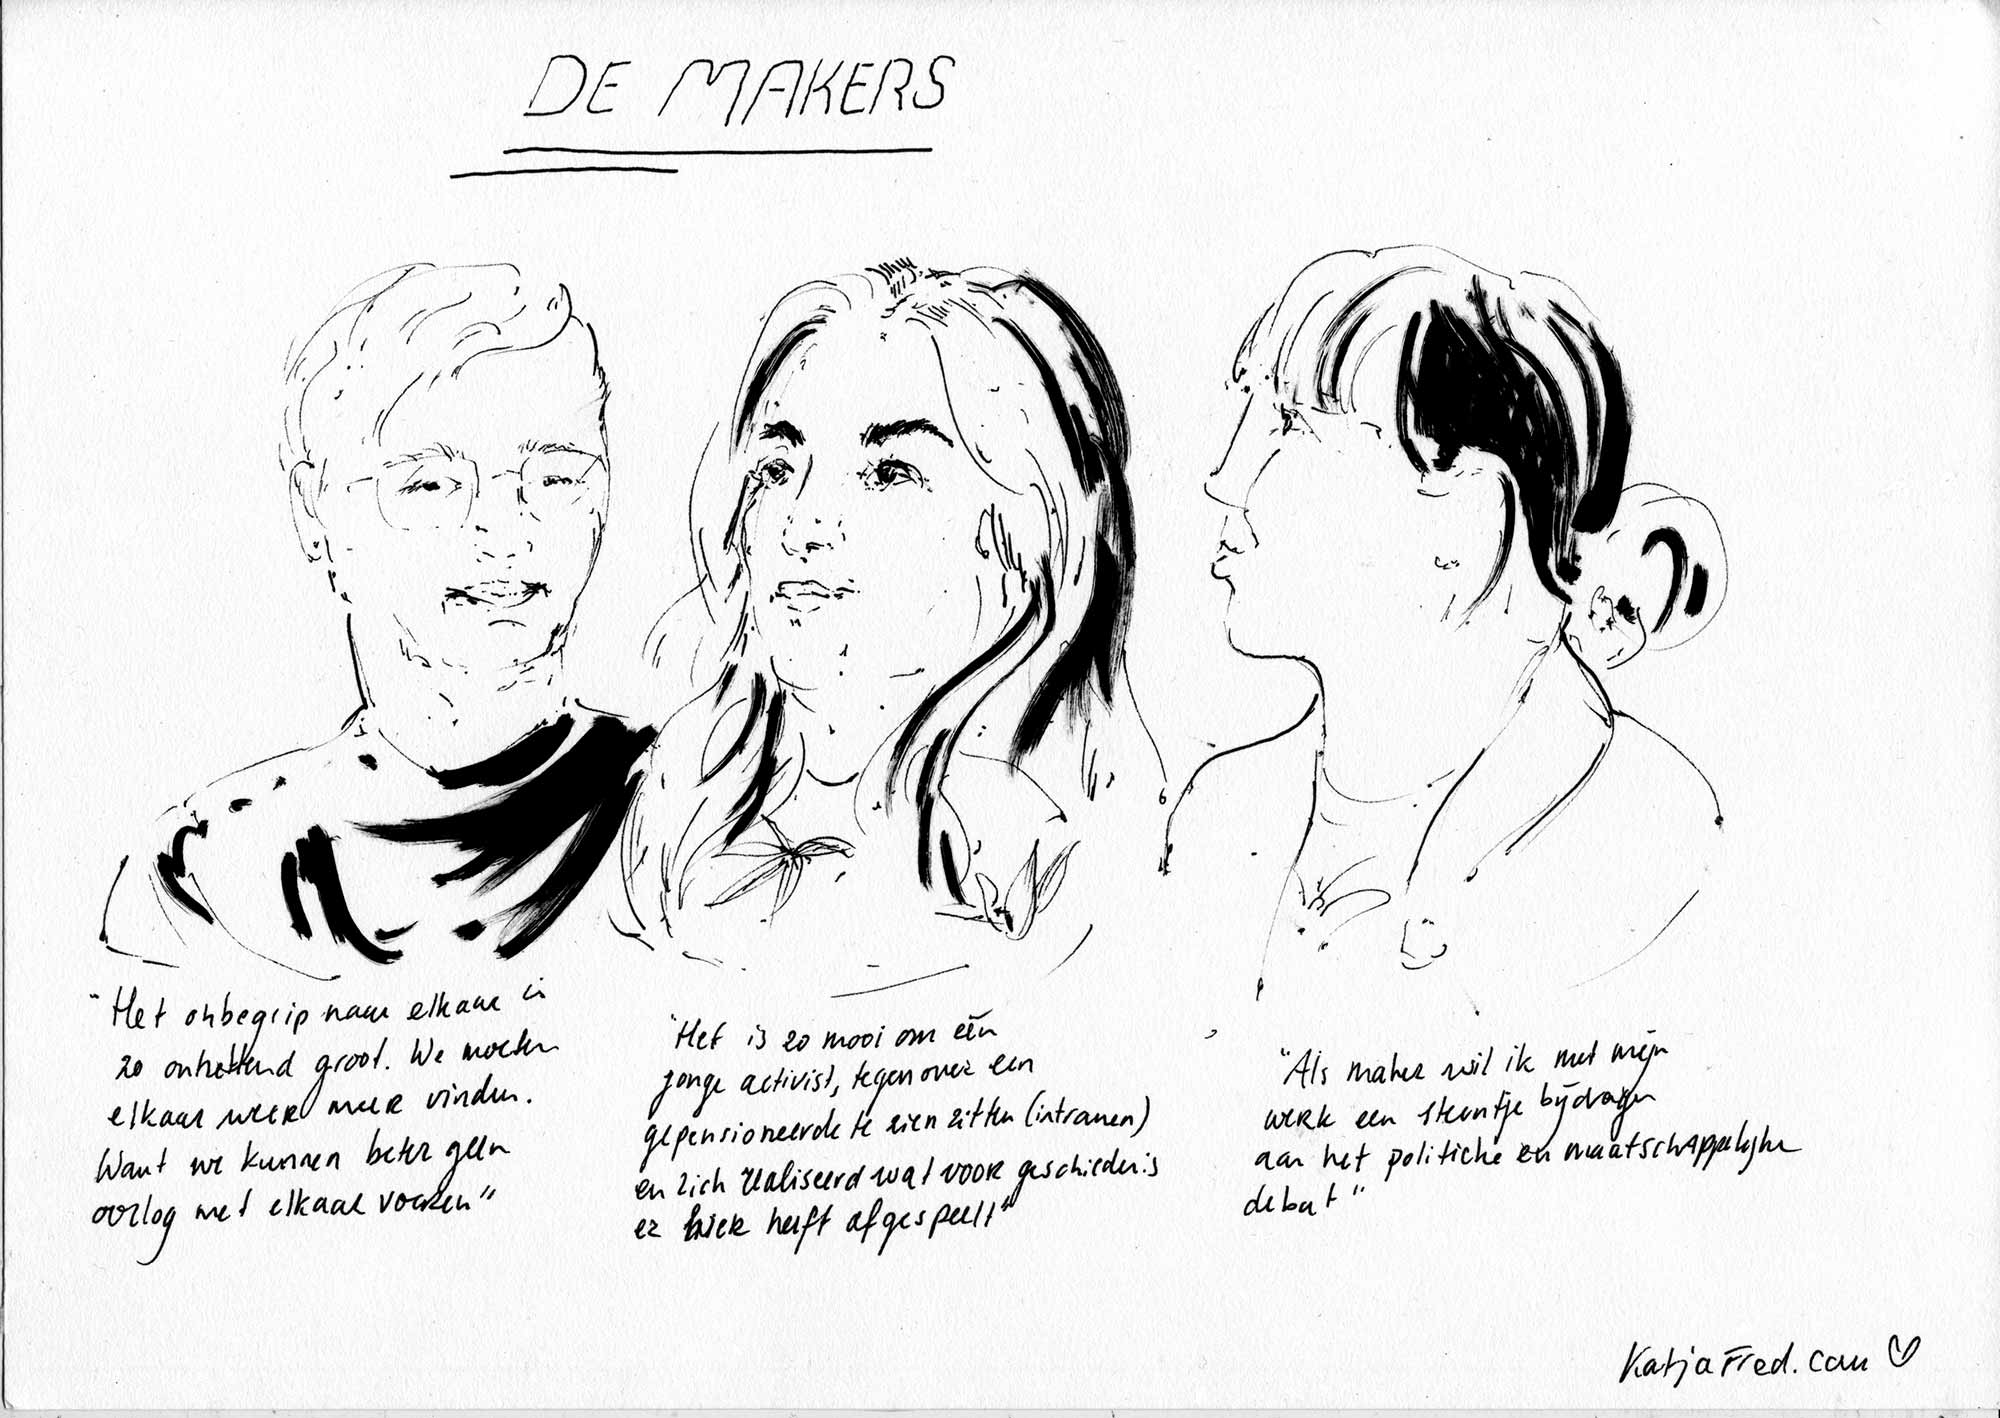 DE MAKERS
"Het onbegrip naar elkaar is
zo ontzettend groot. We moeten
elkaar weer meer vinden.
Want we kunnen beter geen
oorlog met elkaar voeren"
"Het is zo mooi om één
jonge activist, tegenover een
gepensioneerde te zien zitten (intranen)
en zich realiseerd wat voor geschiedenis
er hier heeft afgespeelt"
"Als maker wil ik met mijn
werk een steentje bijdragen
aan het politiche en maatschappelijke
debat"
KatjaFred.com